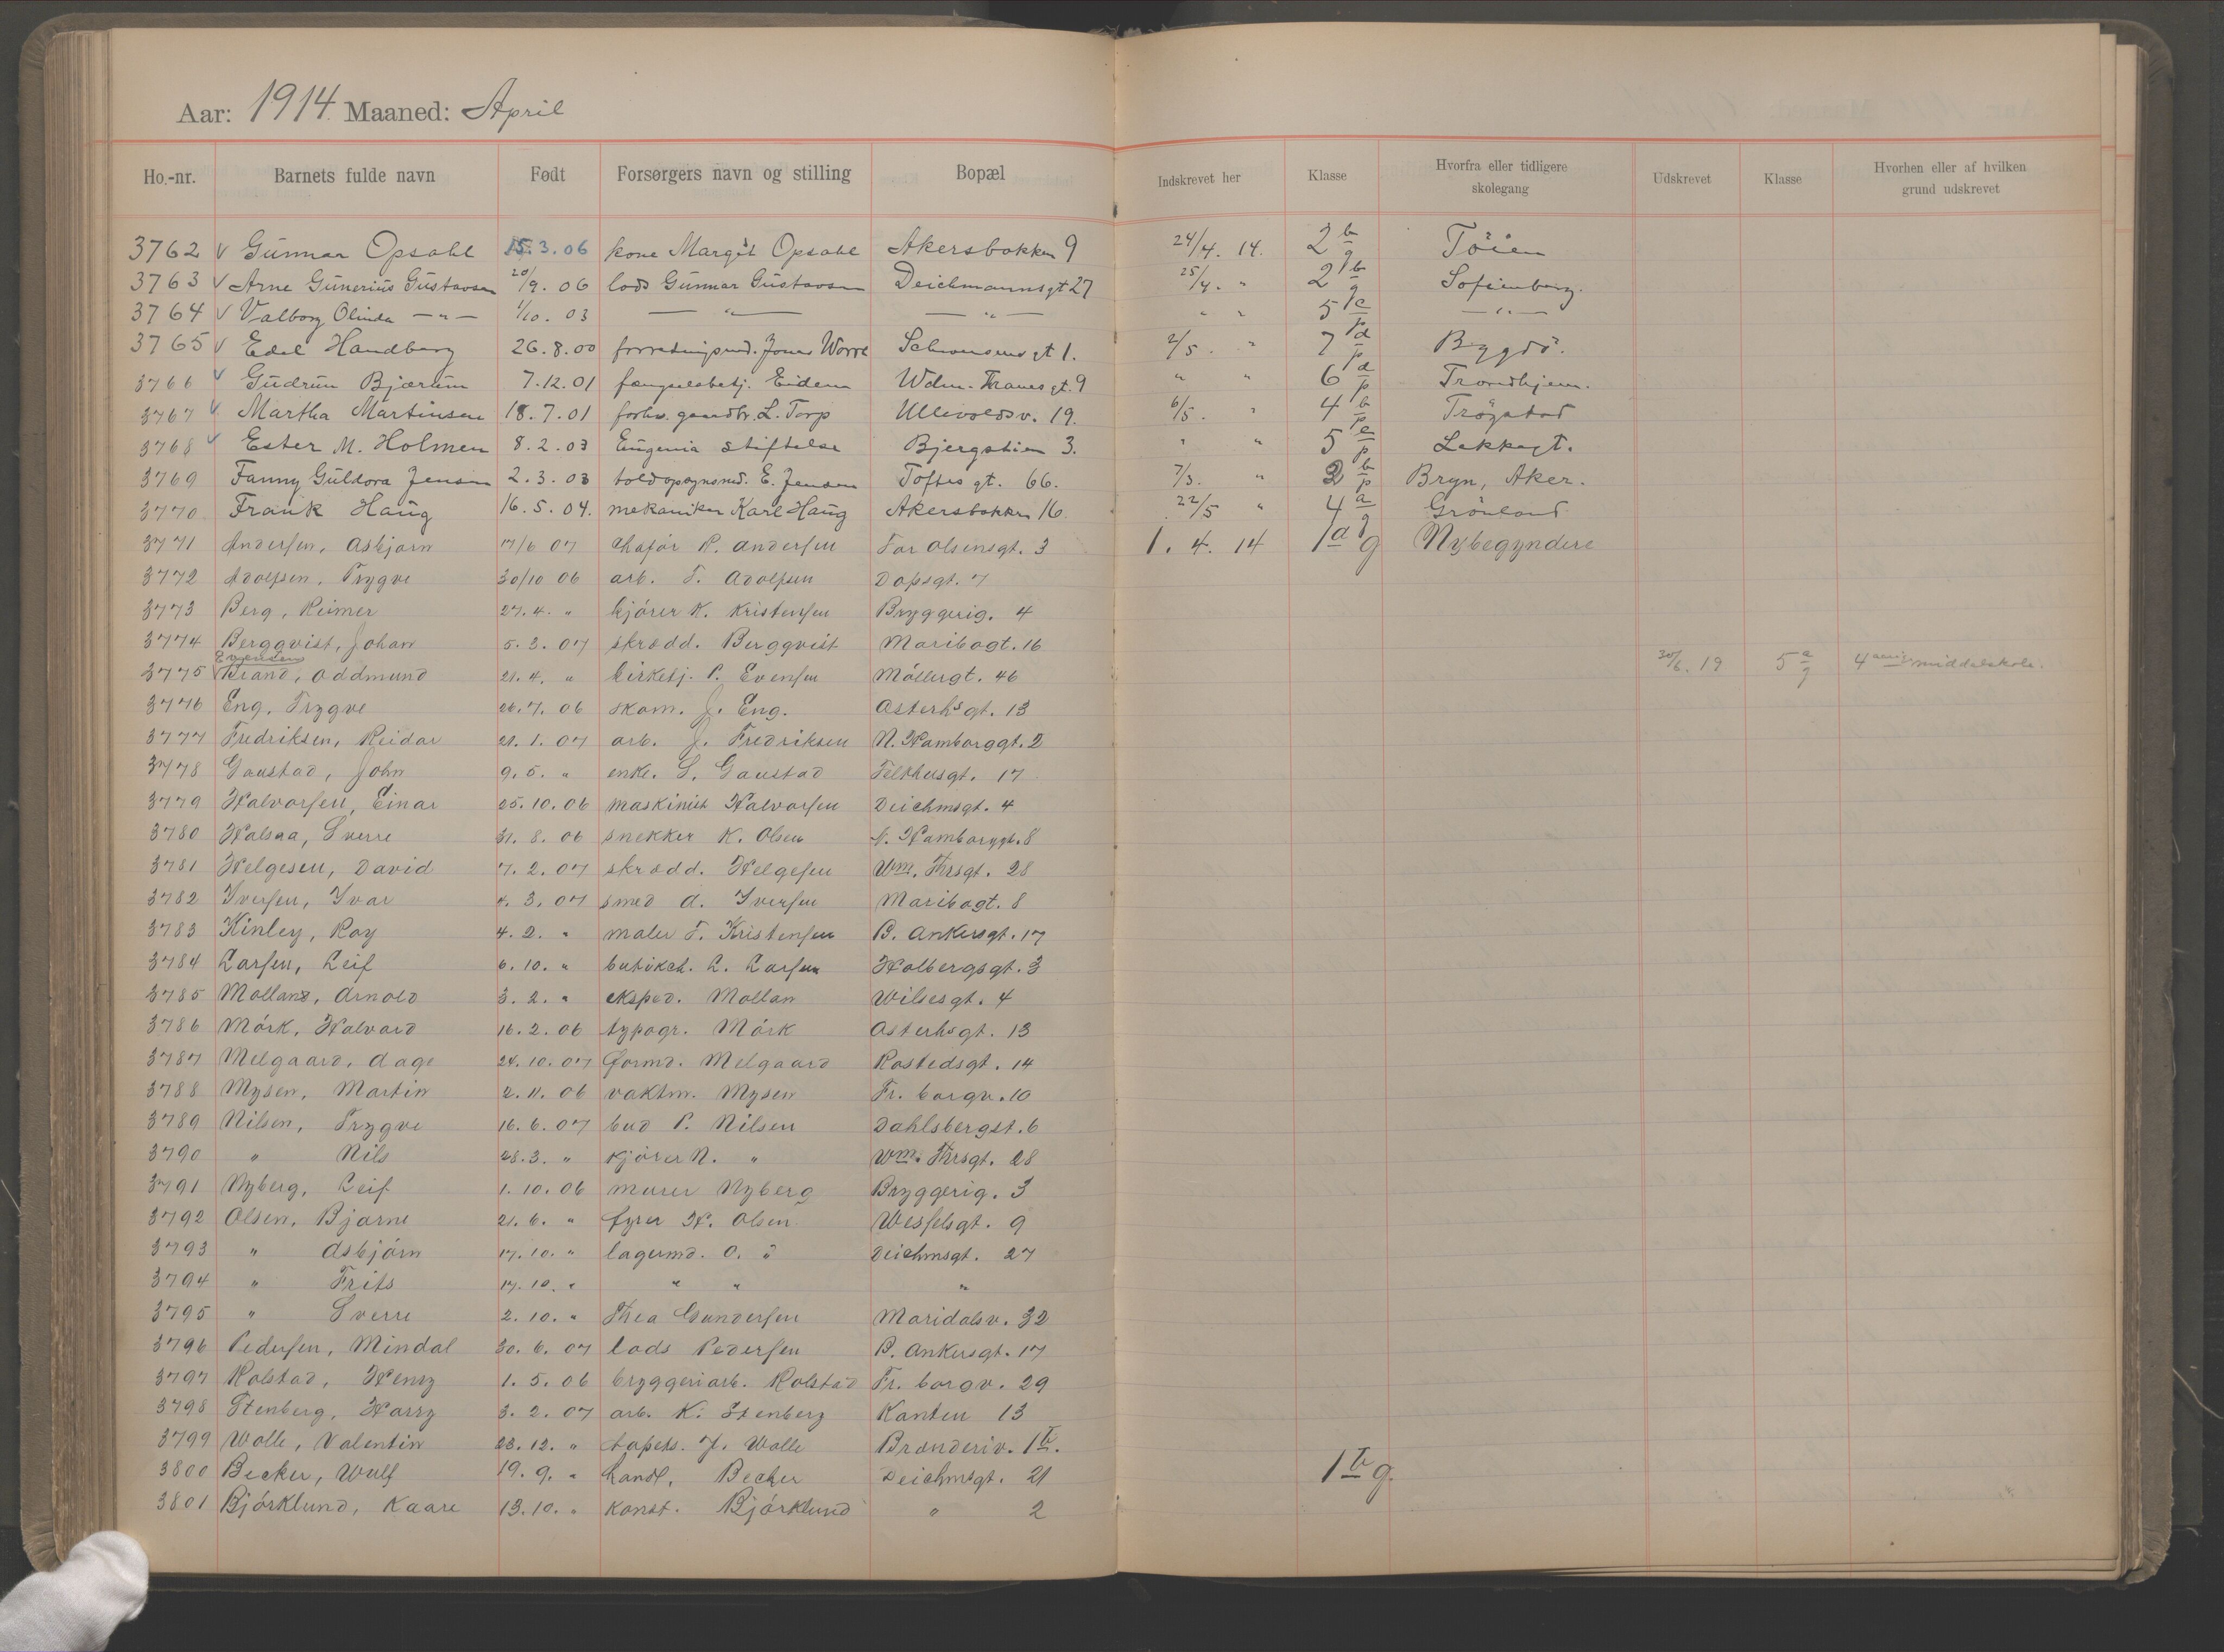 Aar: 1914. Maaned: April
Ho.-nr. Barnets fulde navn Født Forsørgers navn og stilling Bopæl Indskrevet her Klasse Hvorfra eller tidligere skolegang Udskrevet Klasse Hvorhen eller af hvilken grund udskrevet
3762 v Gunnar Opsahl 15.3.06 kone Margit Opsahl Akersbakken 9 24/4. 14. 2 b g Töien
3763 v Arne Gunerius Gustavsen 20/9. 06 lods Gunnar Gustavsen Deichmannsgt 27 25/4. " 2 b g Sofienberg.
3764 v Valborg Olinda — " — 1/10. 03 — " — — " — " " 5 c p — " —
3765 v Edel Handberg 26.8.00 Jonas Worre Schwensens gt 1. 2/5. " 7 d p Bygdö.
3766 v Gudrun Bjærum 7.12.01 fængselsbetj. Eidem Wdm. Tranes gt. 9 " " 6 d p Trondhjem.
3767 v Martha Martinsen 18.7.01 forhv. gaardbr. L. Torp Ullevoldsv. 19. 6/5. " 4 b p Trögstad
3768 v Ester M. Holmen 8.2.03 Eugenia stiftelse Bjergstien 3. " " 5 e p Lakkegt.
3769 Fanny Guldora Jensen 2.3.03 toldopsynsmd. E. Jensen Toftes gt. 66. 7/3. " 3 b p Bryn, Aker.
3770 Frank Haug 16.5.04. mekaniker Karl Haug Akersbakken 16 22/5 " 4 a g Grönland
3771 Andersen, Asbjørn 17/6 07 chafør P. Andersen Tor Olsensgt. 3 1. 4. 14 1 a g Nybegyndere
3772 Adolfsen, Trygve 30/10 06 arb. T. Adolfsen Dopsgt. 7
3773 Berg, Reimer 27.4. " kjører K. Kristensen Bryggerig. 4
3774 Bergqvist, Johan 5.3.07 skrædd. Bergqvist Maribogt. 16
Evensen
3775 v Brand, Oddmund 21.4. " kirketj. P. Evensen Møllergt. 46 30/6. 19 5 a g 4 aarig middelskole.
3776 Eng, Trygve 26.7.06 skom. J. Eng. Asterhsgt. 13
3777 Fredriksen, Reidar 21.1.07 arb. J. Fredriksen N. Hamborggt. 2
3778 Gaustad, John 9.5. " enke. S. Gaustad Telthusgt. 17
3779 Halvorsen, Einar 25.10.06 maskinist Halvorsen Deichmsgt. 4
3780 Halsaa, Sverre 31.8.06 snekker K. Olsen N. Hamborggt. 8
3781 Helgesen, David 7.2.07 skrædd. Helgesen Wm. Thrsgt. 28
3782 Iversen, Ivar 4.3.07 smed A. Iversen Maribogt. 8
3783 Kinley, Roy 4.2. " maler T. Kristensen B. Ankersgt. 17
3784 Larsen, Leif 6.10. " L. Larsen Holbergsgt. 3
3785 Molland, Arnold 3.2. " eksped. Mollan Wilsesgt. 4
3786 Mørk, Halvard 16.2.06 typogr. Mørk Asterhsgt. 13
3787 Melgaard, Aage 24.10.07 formd. Melgaard Rostedsgt. 14
3788 Mysen, Martin 2.11.06 vaktm. Mysen Fr. borgv. 10
3789 Nilsen, Trygve 16.6.07 bud P. Nilsen Dahlsbergst. 6
3790 " Nils 28.3. " kjører N. " Wm. Thrsgt. 28
3791 Nyberg, Leif 1.10.06 murer Nyberg Bryggerig. 3
3792 Olsen, Bjarne 21.6. " fyrer H. Olsen Wesselsgt. 9
3793 " Asbjørn 17.10. " lagermd. O. " Deichmsgt. 27
3794 " Frits 17.10. " " " "
3795 " Sverre 2.10. " Thea Gundersen Maridalsv. 32
3796 Pedersen, Mindal 30.6.07 lods Pedersen B. Ankersgt. 17
3797 Rolstad, Henry 1.5.06 bryggeriarb. Rolstad Fr. borgv. 29
3798 Stenberg, Harry 3.2.07 arb. K. Stenberg Kanten 13
3799 Wolle, Valentin 23.12. " tapets. J. Wolle Brænderiv. 1 b.
3800 Becker, Wulf 19.9. " handl. Becker Deichmsgt. 21 1 b g.
3801 Bjørklund, Kaare 13.10. " konst. Bjørklund " 2